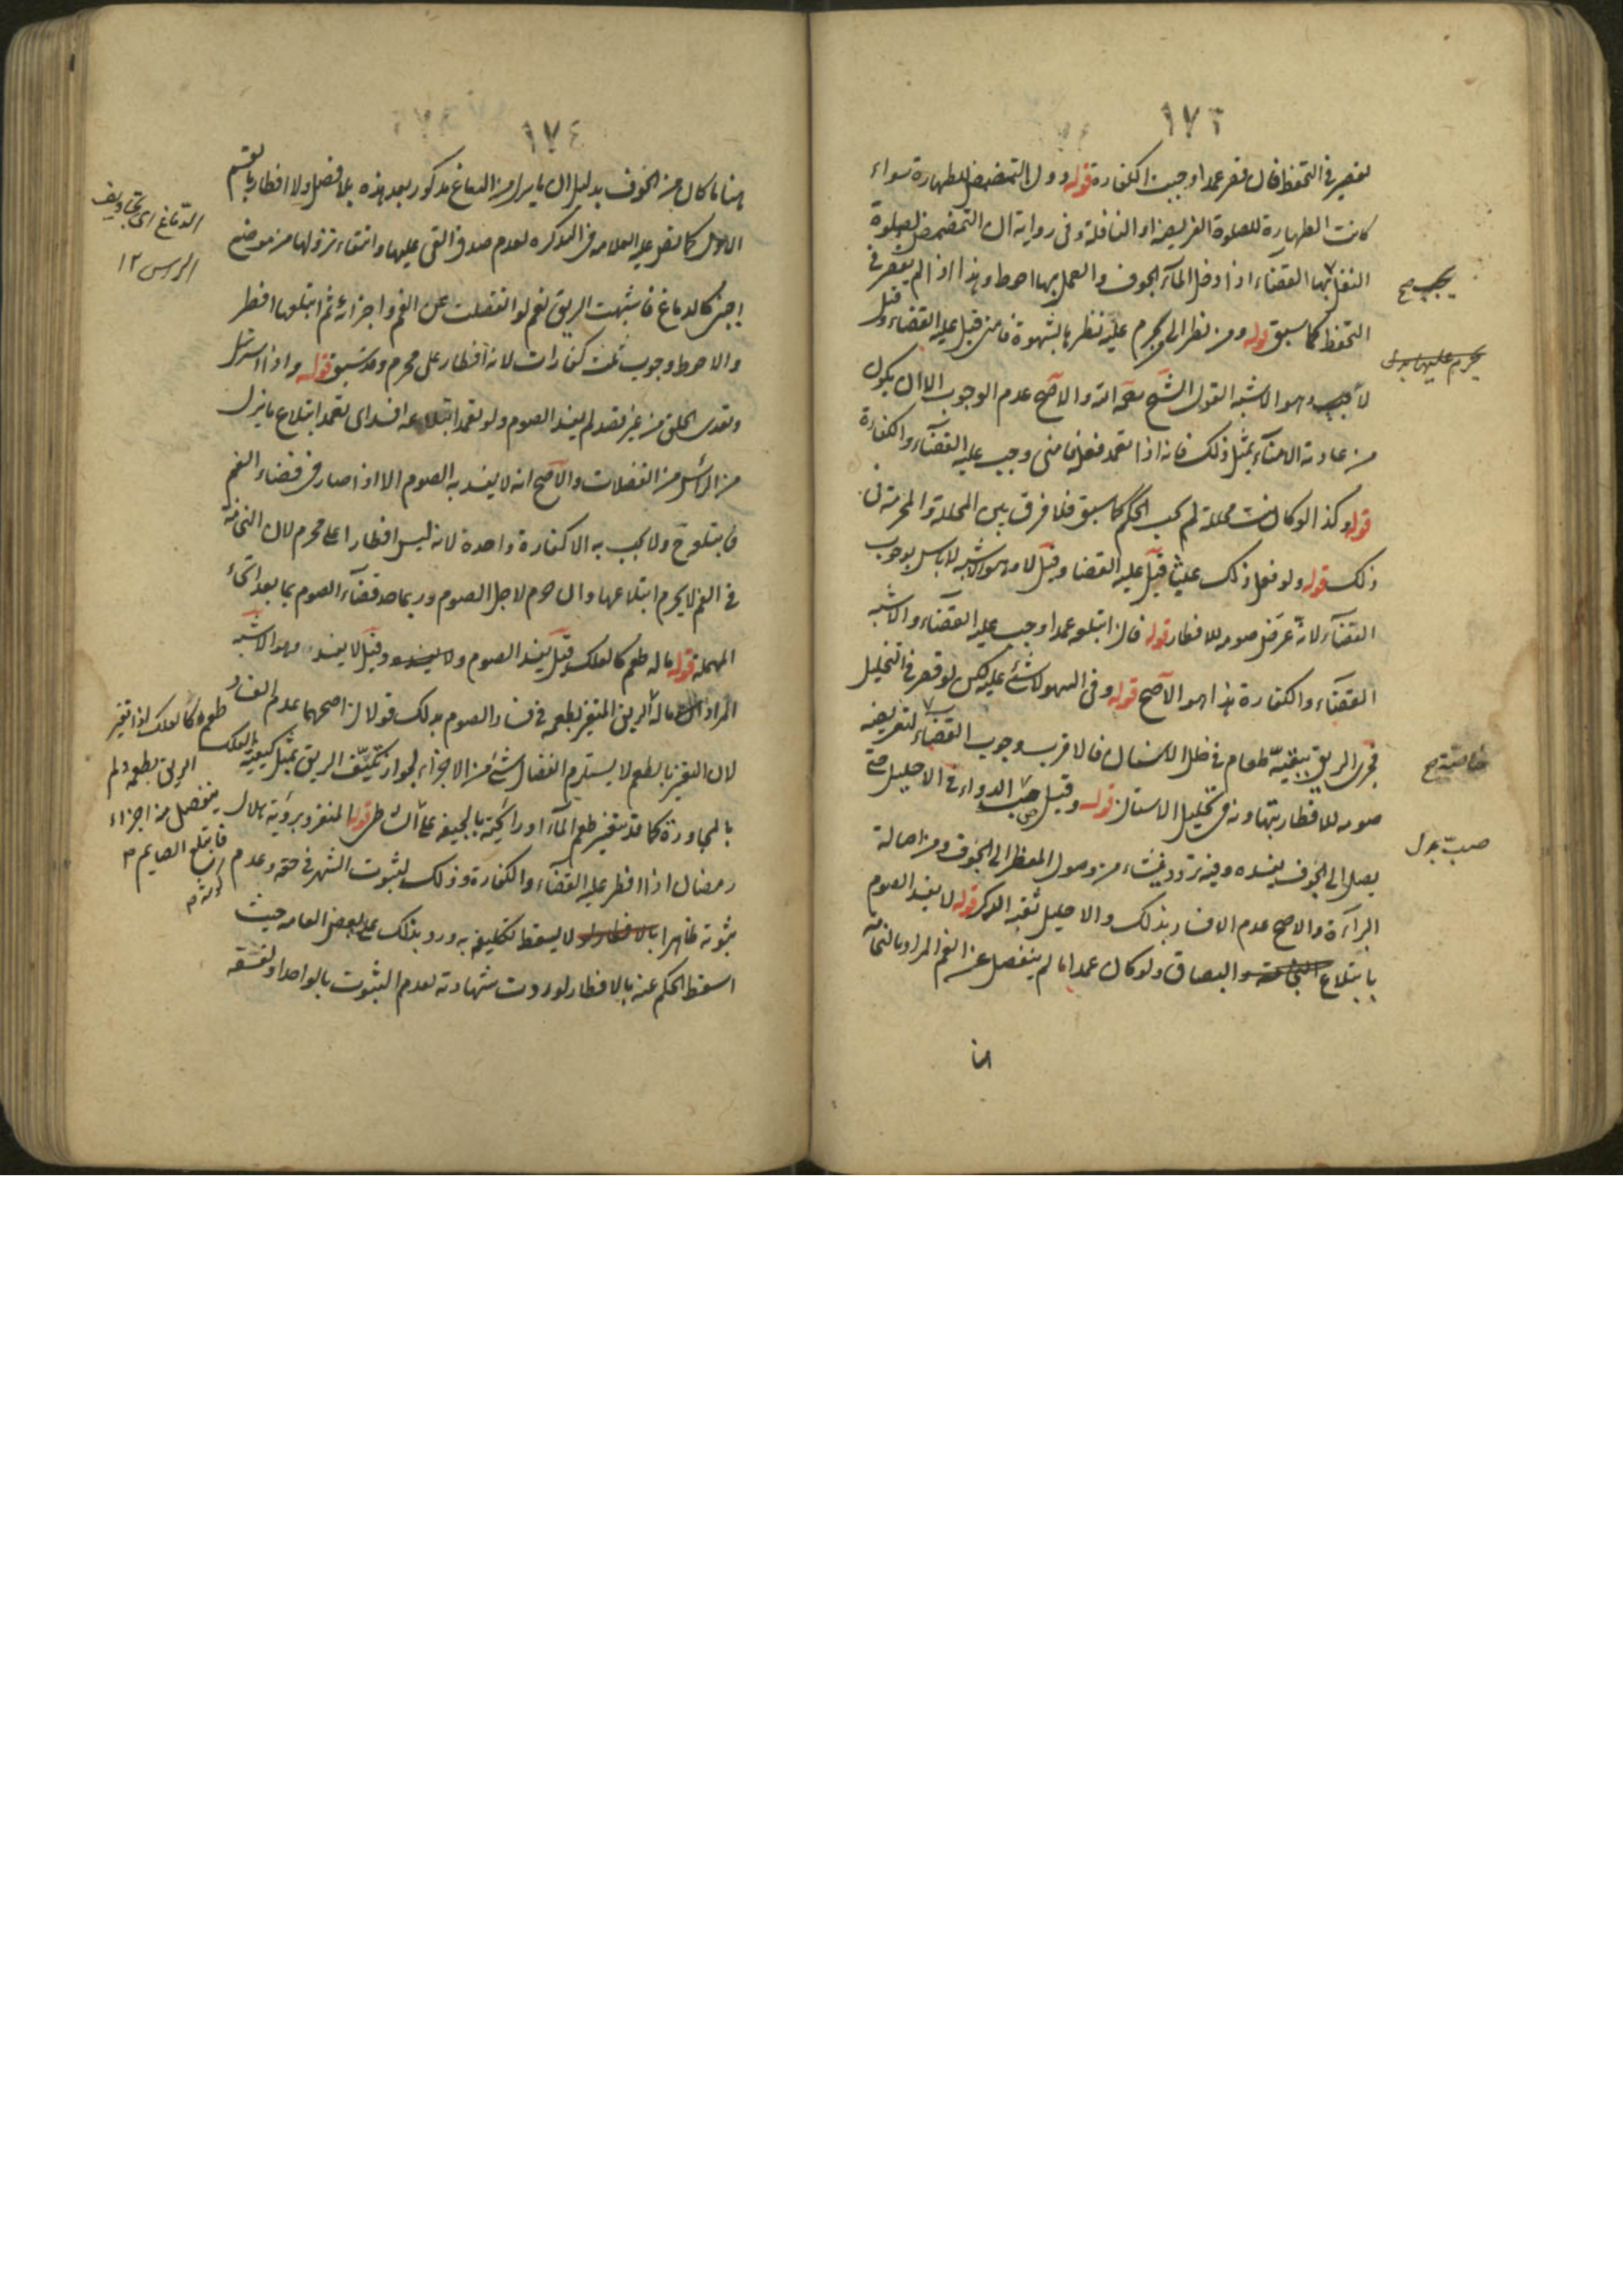 ١٧٣
يقصر في التحفظ فان قصر عمدا وجبت الكفارة قوله دون التمضمض للطهارة سواء
كانت الطهارة للصلوة الفريضة او النافلة وفي رواية ان التمضمض لصلوة
النفل يجب بها القضاء اذا دخل الماء الجوف والعمل بها احوط وهذا اذا لم يقصر في
التحفظ كما سبق قوله ومن نظر الى من يحرم عليه نظرها بشهوة فامنى قيل عليه القضاء وقيل
لا يجب وهو الاشبه القول الشيخ رحمه الله والاصح عدم الوجوب الا ان يكون
من عادته الامناء بمثل ذلك فانه اذا تعمد فعله فامنى وجب عليه القضاء والكفارة
قوله وكذا لو كانت محللة لم يجب الحكم كما سبق فلا فرق بين المحللة والمحرمة في
ذلك قوله ولو فعل ذلك عبثا قيل عليه القضا وقيل لا وهو الاشبه لا باس بوجوب
القضاء لانه عرض صومه للافطار قوله فان ابتلعه عمدا وجب عليه القضاء والاشبه
القضاء والكفارة هذا هو الاصح قوله وفي السهو لا شئ عليه لكن لو قصر في التخليل
فجرى الريق ببقية طعام في خلل الاسنان فالاقرب وجوب القضاء لتعريضه
صومه للافطار بتهاونه في تخليل الاسنان قوله وقيل صب الدواء في الاحليل حتى
يصل الى الجوف يفسده وفيه تردد ينشاء من وصول المفطر الى الجوف ومن اصالة
البراءة والاصح عدم الافساد بذلك والاحليل ثقبة الذكر قوله لا يفسد الصوم
بابتلاع النخامة والبصاق ولو كان عمدا ما لم ينفصل عن الفم المراد بالنخامة
يجب صح
يحرم عليها بدل
خاصة صح
صب بدل
١٧٤
هنا ما كان من الجوف بدليل ان ما ينزل من الدماغ مذكور بعد هذه بلا فصل ولا افطار بالقسم
الاول كما نص عليه العلامة في التذكرة لعدم صدق القئ عليها وانتفاء نزولها من موضع
اجنبي كالدماغ فاشبهت الريق نعم لو انفصلت عن الفم واجزائه ثم ابتلعها افطر
والاحوط وجوب ثلث كفارات لانه افطار على محرم وقد سبق قوله واذا استرسل
وتعدى الحلق من غير قصد لم يفسد الصوم ولو تعمد ابتلاعه افسد اى تعمد ابتلاع ما ينزل
من الراس من الفضلات والاصح انه لا يفسد به الصوم الا اذا صار في فضاء الفم
فابتلعه ح ولا يجب به الا كفارة واحدة لانه ليس افطارا على محرم لان النخامة
في الفم لا يحرم ابتلاعها وان حرم لاجل الصوم
المهملة قوله ما له طعم كالعلك قيل يفسد الصوم وقيل لا يفسد وهو الاشبه
المراد ان ما له الريق المتغير بطعمه في فساد الصوم بذلك قولان اصحهما عدم الفساد
لان التغير بالطعم لا يستلزم انفصال شئ من الاجزاء لجواز تكيف الريق بمثل كيفية العلك
بالمجاورة كما قد يتغير طعم الماء او رائحته بالجيفة على الشاطئ قوله المنفرد برؤية هلال
رمضان اذا افطر عليه القضاء والكفارة وذلك لثبوت الشهر في حقه وعدم
ثبوته ظاهرا لا يسقط تكليفه به ورد بذلك على بعض العامه حيث
اسقط الحكم عنه بالافطار لو ردت شهادته لعدم الثبوت بالواحد او لفسقه
الدماغ اى تجاويف
الراس ١٢
طعم كالعلك اذا تغير
الريق بطعمه ولم
ينفصل من اجزاء
فابتلع الصايم